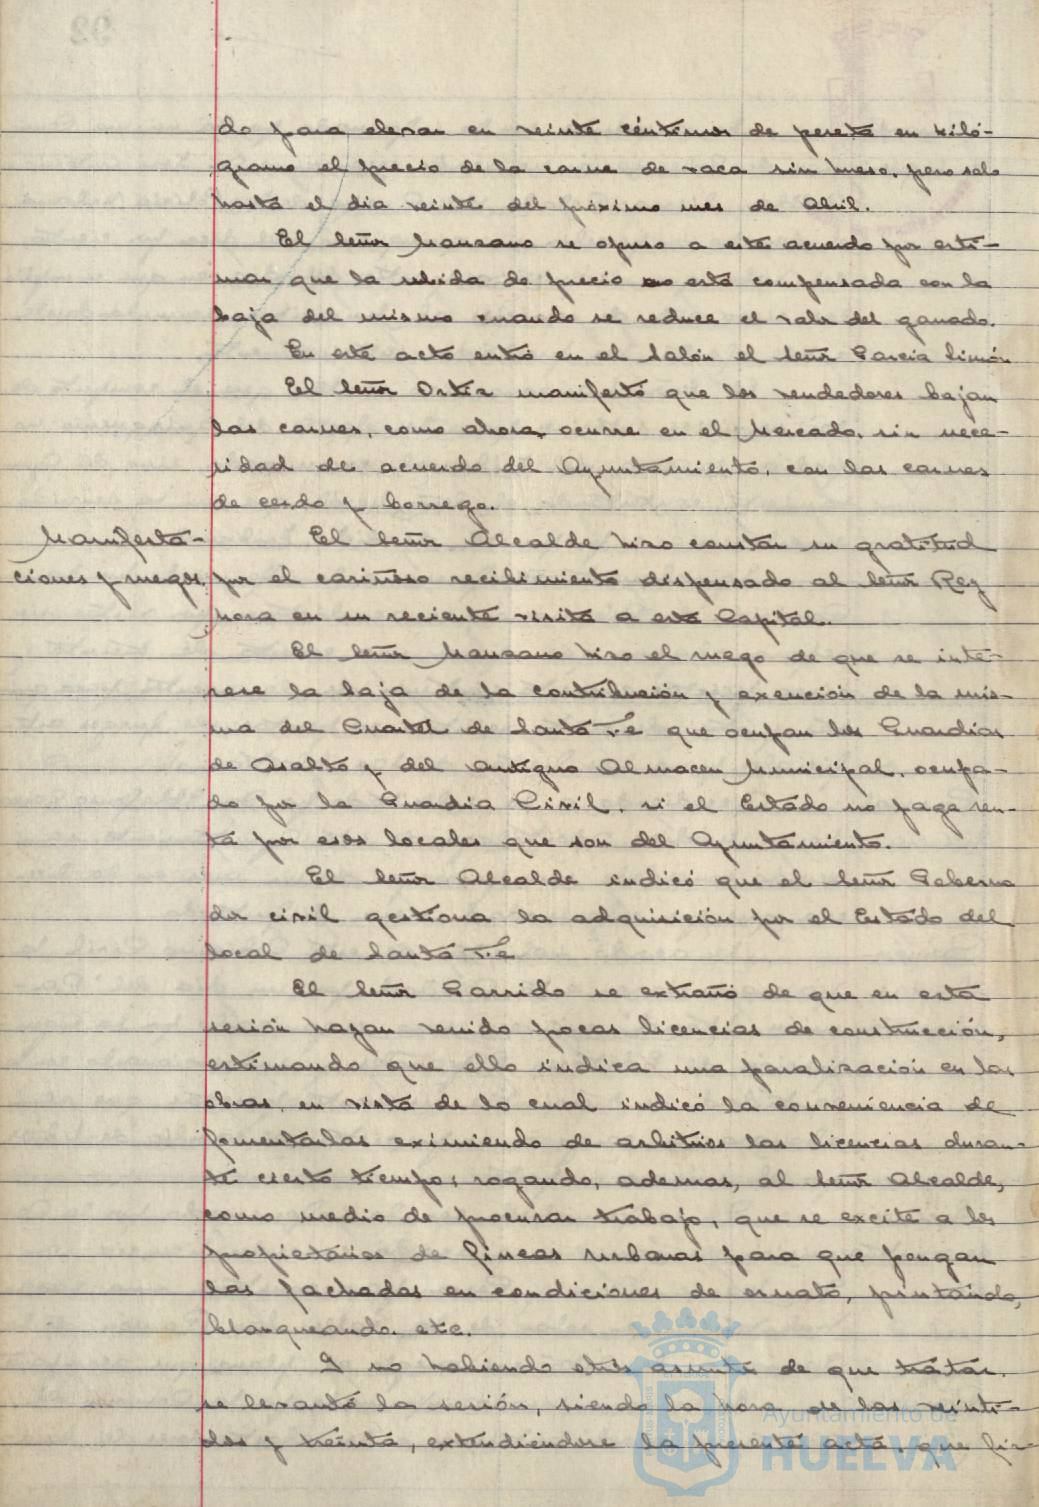 do para elevar en veinte céntimos de peseta en kiló-
gramo el precio de la carne de vaca sin hueso, pero solo
hasta el dia veinte del próximo mes de Abril.
El Señor Manzano se opuso a este acuerdo por esti-
mar que la subida de precio no está compensada con la
baja del mismo cuando se reduce el valor del ganado.
En este acto entró en el Salón el Señor Garcia Limón
El Señor Ortiz manifestó que los vendedores bajan
las carnes, como ahora ocurre en el Mercado, sin nece-
sidad de acuerdo del Ayuntamiento, con las carnes
de cerdo y borrego.
Manifesta-
ciones y ruegos.
El Señor Alcalde hizo constar su gratitud
por el cariñoso recibimiento dispensado al Señor Rey
Mora en su reciente visita a esta Capital.
El Señor Manzano hizo el ruego de que se inte-
rese la baja de la contribución y exención de la mis-
ma del Cuartel de Santa Fé que ocupan los Guardias
de Asalto y del antiguo Almacen Municipal, ocupa-
do por la Guardia Civil, si el Estado no paga ren-
ta por esos locales que son del Ayuntamiento.
El Señor Alcalde indicó que el Señor Goberna
dor civil gestiona la adquisición por el Estado del
local de Santa Fé
El Señor Garrido se extrañó de que en esta
sesión hayan venido pocas licencias de construcción,
estimando que ello indica una paralización en las
obras, en vista de lo cual indicó la conveniencia de
fomentarlas eximiendo de arbitrios las licencias duran-
te cierto tiempo, rogando, ademas, al Señor Alcalde,
como medio de procurar trabajo, que se excite a los
propietarios de fincas urbanas para que pongan
las fachadas en condiciones de ornato, pintando,
blanqueando. etc.
Y no habiendo otros asuntos de que tratar,
se levantó la sesión, siendo la hora de las veinti-
dos y treinta, extendiéndose la presente acta, que fir-
Ayuntamiento de
HUELVA